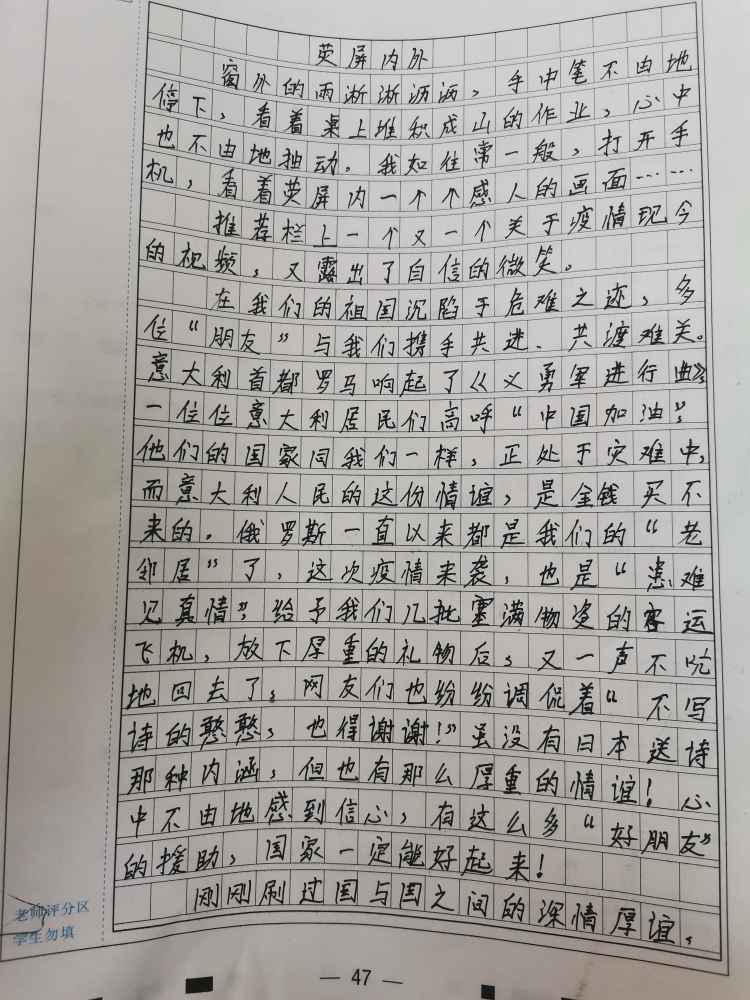 荧屏内外
窗外的雨淅淅沥沥，手中笔不由地
停下，看着桌上堆积成山的作业，心中
也不由地抽动。我如往常一般，打开手
机，看着荧屏内一个个感人的画面……
推荐栏上一个又一个关于疫情现今
的视频，又露出了自信的微笑。
在我们的祖国沉陷于危难之迹，多
位“朋友”与我们携手共进、共渡难关。
意大利首都罗马响起了《义勇军进行曲》，
一位位意大利居民们高呼“中国加油”，
他们的国家同我们一样，正处于灾难中，
而意大利人民的这份情谊，是金钱买不
来的。俄罗斯一直以来都是我们的“老
邻居”了，这次疫情来袭，也是“患难
见真情”，给予我们几批塞满物资的客运
飞机，放下厚重的礼物后，又一声不吭
地回去了。网友们也纷纷调侃着“不写
诗的憨憨，也得谢谢！”虽没有日本送诗
那种内涵，但也有那么厚重的情谊！心
中不由地感到信心，有这么多“好朋友”
的援助，国家一定能好起来！
刚刚刷过国与国之间的深情厚谊，
老师评分区
学生勿填
— 47 —